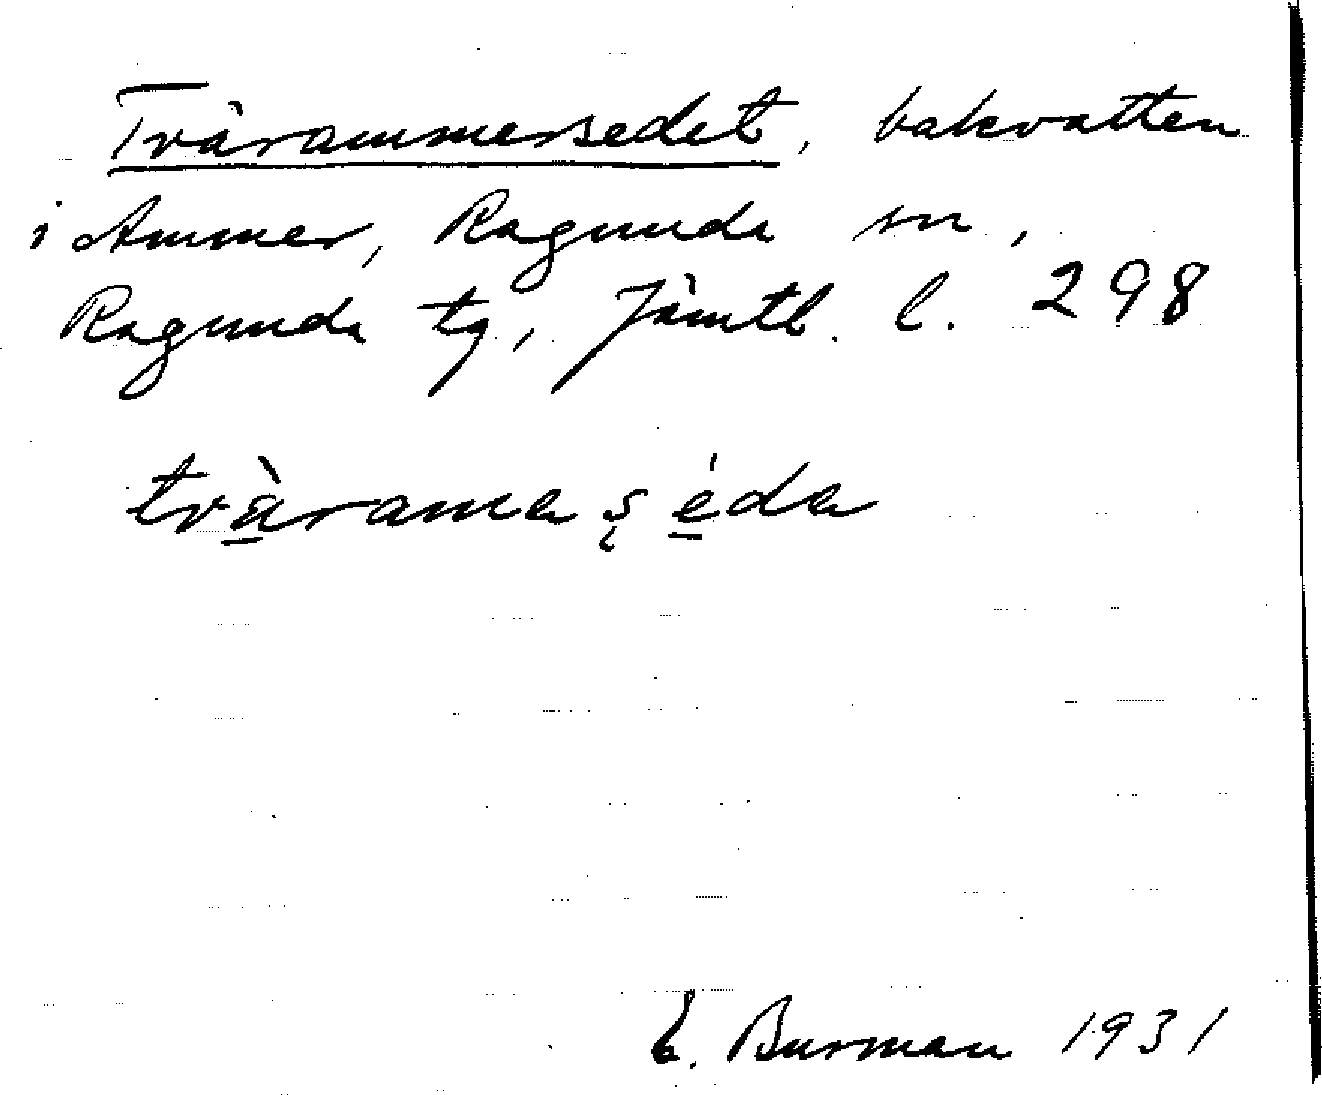 Tvärammersedet, bakvatten
i Ammer, Ragunda sn,
Ragunda tg, Jämtl. l. 298
tvä̀rama s̨éda
E. Burman 1931